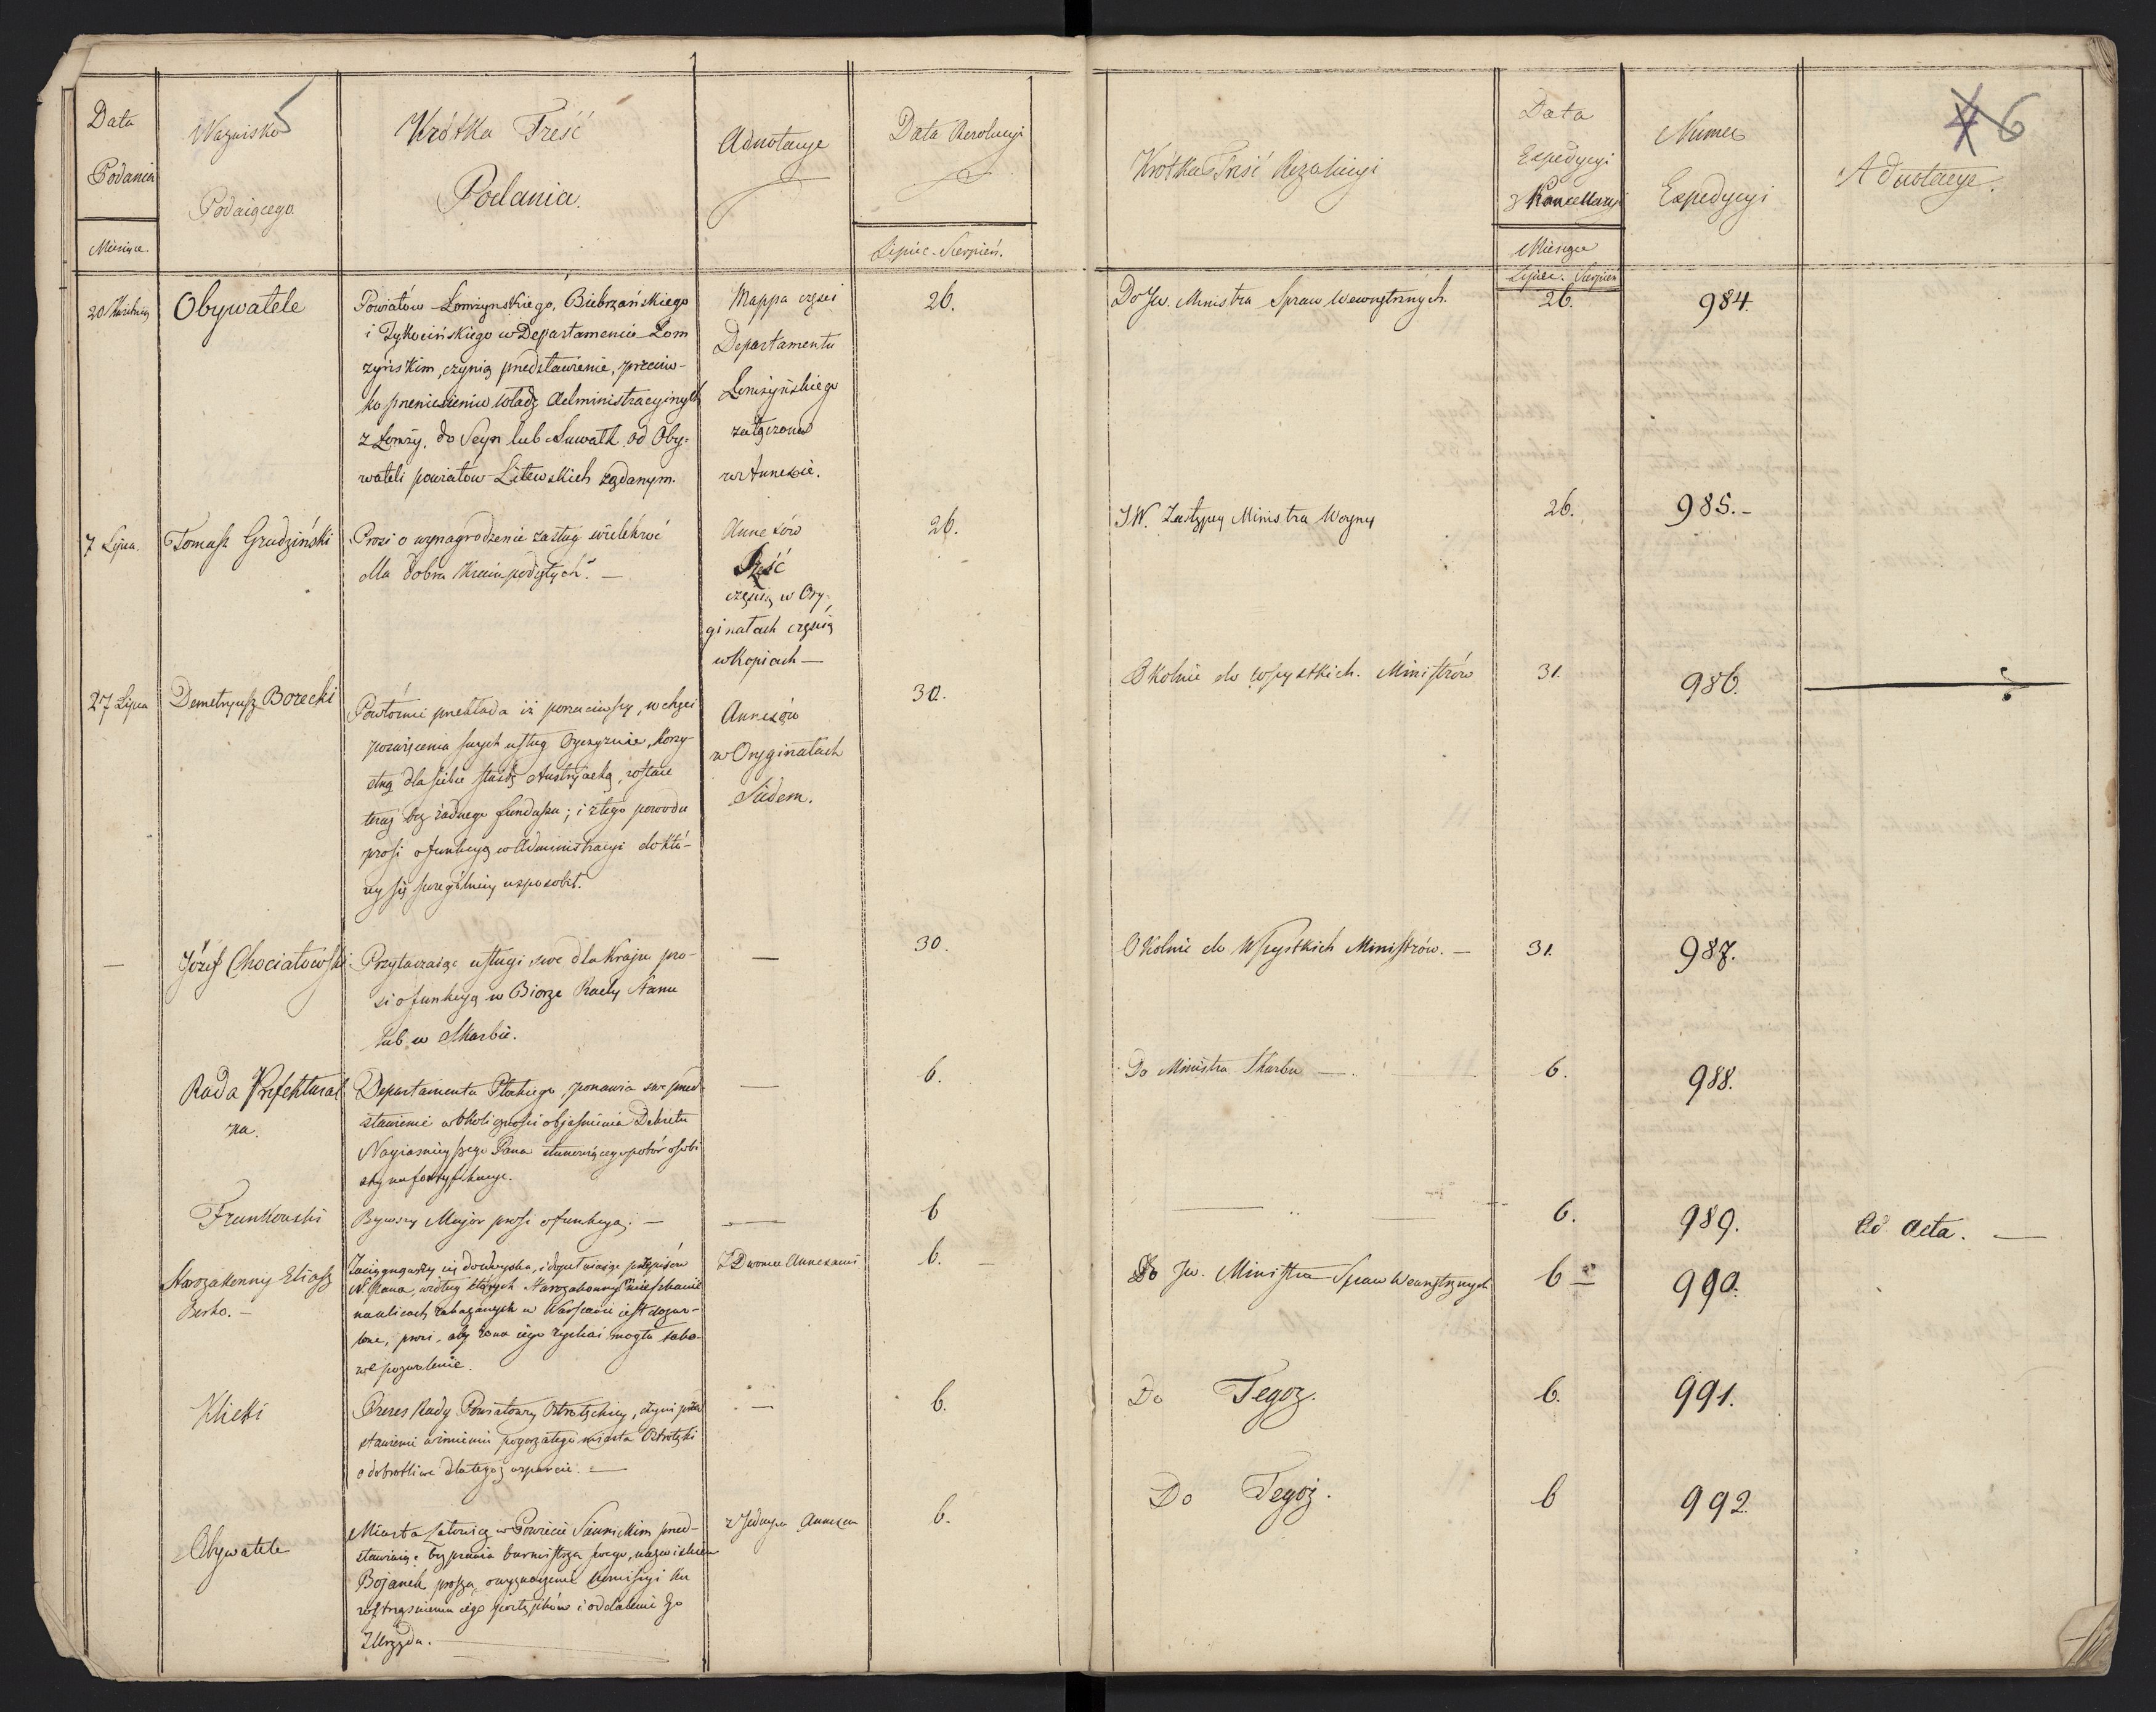 Data
Podania
Miesiące.
Nazwisko
Podaiącego
5
Krótka Treść
Podania.
Adnotacye
Data Rezolucyi
Lipiec - Sierpień.
Krótka Treść Rezolucyi
Data
Expedycyi
z Kancellaryi
Miesiące
Lipiec. Sierpień
Numer
Expedycyi
6
Adnotacye.
20 Kwietnia
Obywatele
Powiatów Łomżynskiego, Biebrzańskiego
i Tykocińskiego w Departamencie Łom
żyńskim, czynią przedstawienie, przeciw-
ko przeniesieniu władz administracyinych
z Łomży, do Seyn lub Suwałk od Oby-
wateli powiatow Litewskich żądanym.
Mappa części
Departamentu
Łomżyńskiego
załączona
w Annexie.
26.
Do Jw. Ministra Spraw Wewnętrznych.
26.
984.
7 Lipca.
Tomasz Grudziński
Prosi o wynagrodzenie zasług wielekroć
dla dobra Kraiu podiętych. —
Annexów
Sześć
częścią w Ory-
ginałach częścią
w Kopiach —
26.
JW. Zastępcy Ministra Woyny
26.
985. -
27 Lipca
Demetryusz Borecki
Powtórnie przekłada iż porzuciwszy, w chęci
poswięcenia swych usług Oyczyznie, korzy-
stną dla siebie służbę Austryacką, zostaie
teraz bez żadnego funduszu; i z tego powodu
prosi o funkcyą w Administracyi do któ-
rey się szczególniey usposobił.
Annexów
w Oryginałach
Siedem.
30.
Okolnie do wszystkich Ministrów
31.
986.
—
Józef Chociatowski
Przytaczaiąc usługi swe dla Kraju pro-
si o funkcyą w Biorze Rady Stanu
lub w Skarbie.
—
30.
Okolnie do Wszystkich Ministrów. —
31.
987.
Rada Prefektural
na.
Departamentu Płockiego, ponawia swe przed
stawienie w okoliczności objaśnienia Dekretu
Nayiasnieyszego Pana stanowiącego pobór osobi
sty na fortyfikacye.
—
6.
Do Ministra Skarbu —
6.
988.
Frankowski
Bywszy Major prosi o funkcyą. —
—
6
—
6.
989.
Ad Acta. —
Starozakonny Eliasz
Berko. —
Zaciągnąwszy się do woyska, i dopełniaiąc przepisów
N. Pana, według których Starozakonnym mieszkanie
na ulicach zakazanych w Warszawie iest dozwo-
lone, prosi, aby żona iego zyskać mogła tako-
we pozwolenie.
Z Dwoma Annexami
6. —
Do Jw. Ministra Spraw Wewnętrznych
6 —
990.
Klicki
Prezes Rady Powiatowey Ostrołęckiey, czyni przed
stawienie w imieniu pogorzałego miasta Ostrołęki
o dobrotliwe dla tegoż wsparcie. —
—
6.
Do Tegoż.
6.
991.
Obywatele
Miasta Latowicz w Powiecie Siennickim przed-
stawiaiąc bezprawia burmistrza swego, nazwiskiem
Bojanek proszą, o wyznaczenie Komissyi ku
roztrząśnieniu iego postępków i oddalenie go
z Urzędu. —
z Jednym Annexem
6.
Do Tegoż.
6
992